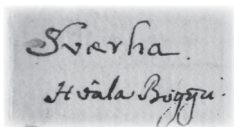 Sværha.
Hvâla Bøggu.